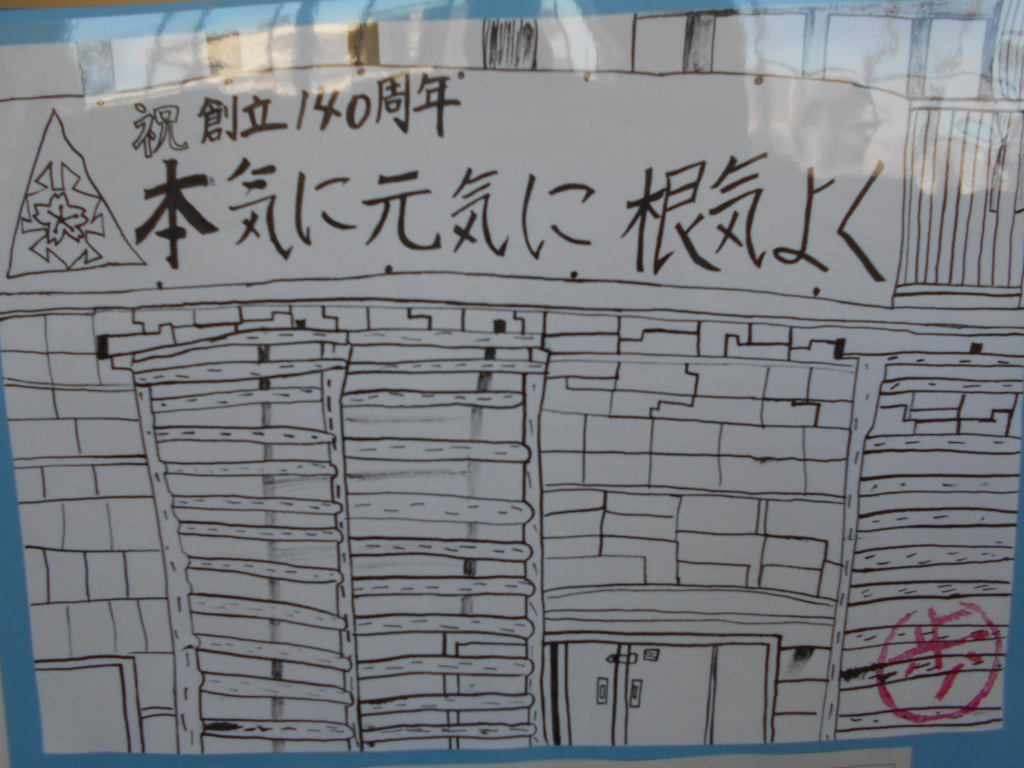 祝 創立140周年
本気に元気に 根気よく
歩